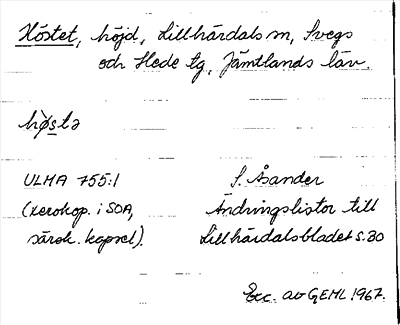 Höstet, höjd, Lillhärdals sn, Svegs
och Hede tg, Jämtlands län.
hø̀sta
ULMA 755:1 S. Åsander
(xerokop. i SOA, Ändringslistor till
särsk. kapsel). Lillhärdalsbladet s.30
Exc. av GEHL 1967.